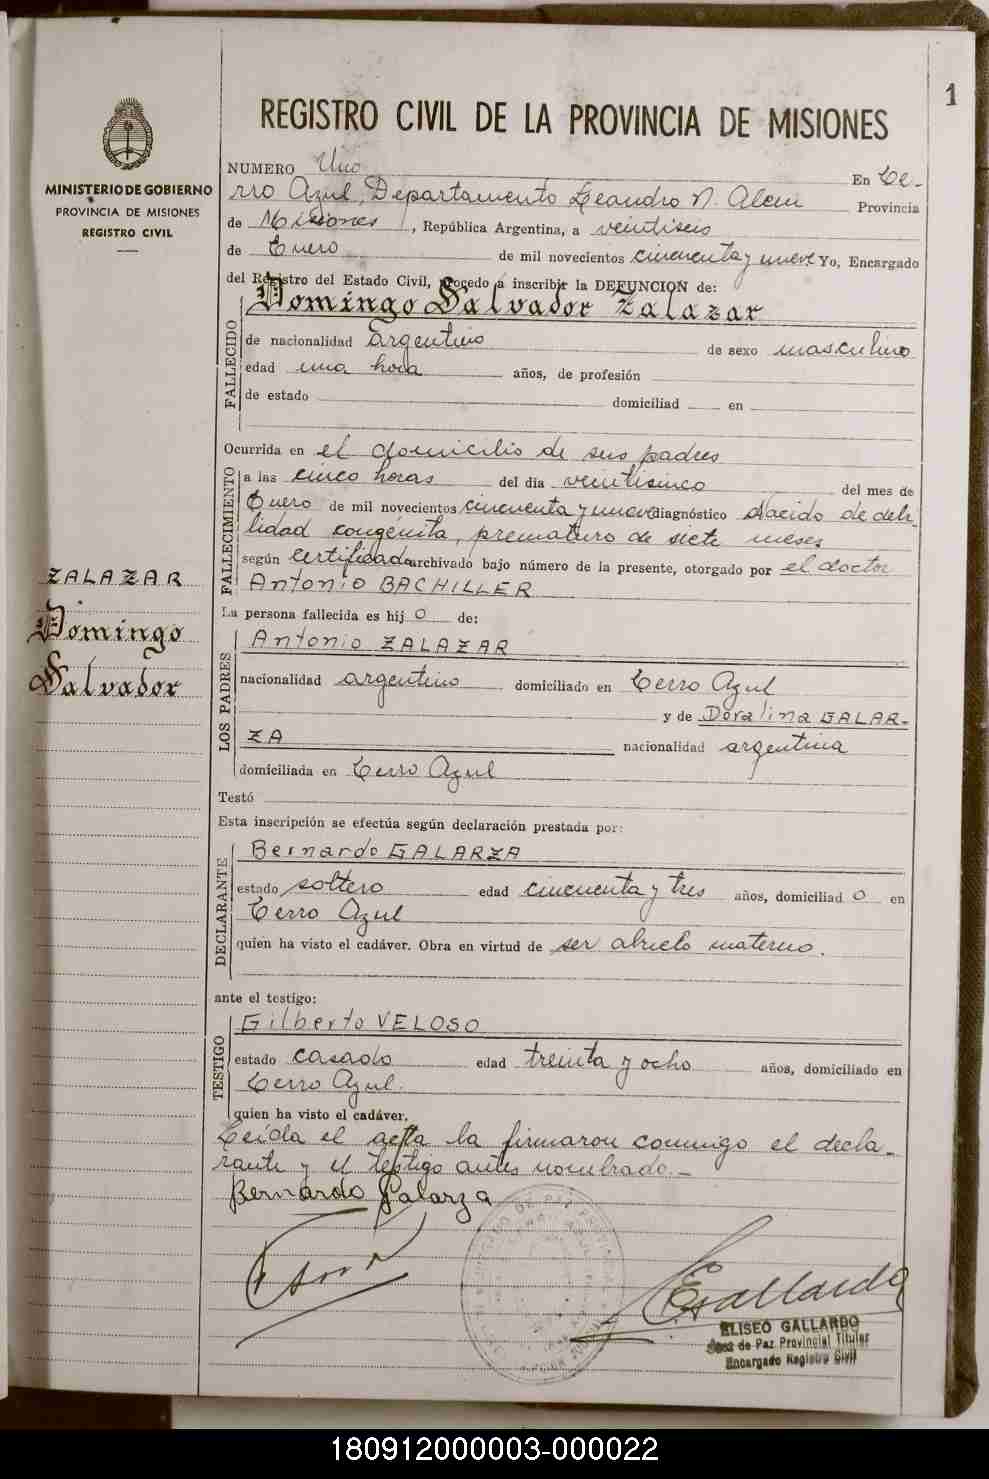 1
REGISTRO CIVIL DE LA PROVINCIA DE MISIONES
MINISTERIO DE GOBIERNO
PROVINCIA DE MISIONES
REGISTRO CIVIL
NUMERO Uno En Ce-
rro Azul, Departamento Leandro N. Alem Provincia
de Misiones, República Argentina, a veintiseis
de Enero de mil novecientos cincuenta y nueve Yo, Encargado
del Registro del Estado Civil, procedo a inscribir la DEFUNCION de:
Domingo Salvador Zalazar
FALLECIDO
de nacionalidad argentino de sexo masculino
edad una hora años, de profesión
de estado domiciliad en
Ocurrida en el domicilio de sus padres
FALLECIMIENTO
a las cinco horas del día veinticinco del mes de
Enero de mil novecientos cincuenta y nueve diagnóstico Nacido de debi-
lidad congénita, prematuro de siete meses
según certificado archivado bajo número de la presente, otorgado por el doctor
Antonio BACHILLER
ZALAZAR
Domingo
Salvador
La persona fallecida es hij o de:
LOS PADRES
Antonio ZALAZAR
nacionalidad argentino domiciliado en Cerro Azul
y de Doralina GALAR-
ZA nacionalidad argentina
domiciliada en Cerro Azul
Testó
Esta inscripción se efectúa según declaración prestada por:
DECLARANTE
Bernardo GALARZA
estado soltero edad cincuenta y tres años, domiciliad o en
Cerro Azul
quien ha visto el cadáver. Obra en virtud de ser abuelo materno.
ante el testigo:
TESTIGO
Gilberto VELOSO
estado casado edad treinta y ocho años, domiciliado en
Cerro Azul.
quien ha visto el cadáver.
Leída el acta la firmaron conmigo el decla-
rante y el testigo antes nombrado.-
Bernardo Galarza
EGallardo
ELISEO GALLARDO
Juez de Paz Provincial Titular
Encargado Registro Civil
180912000003-000022